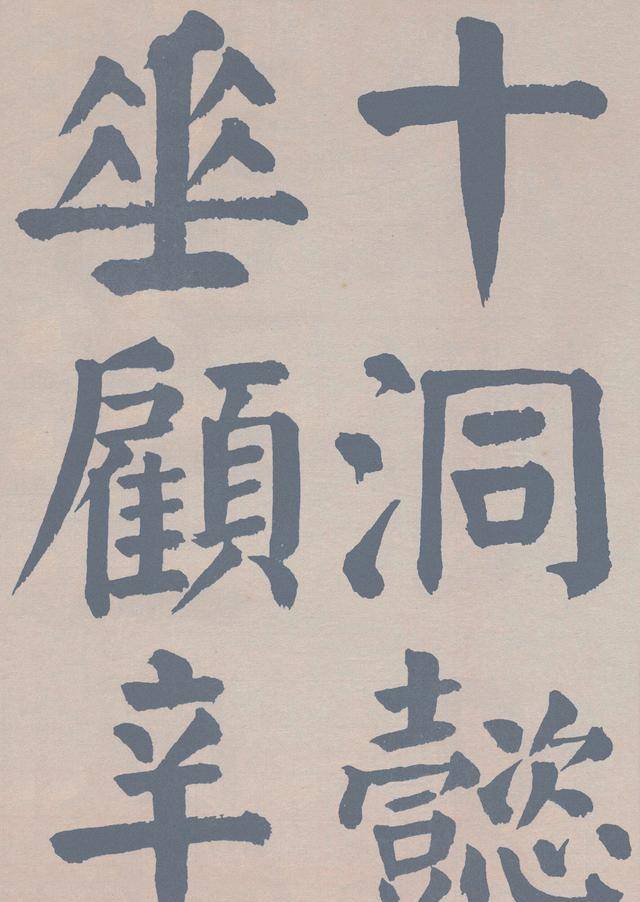 十洞懿
垂顧辛